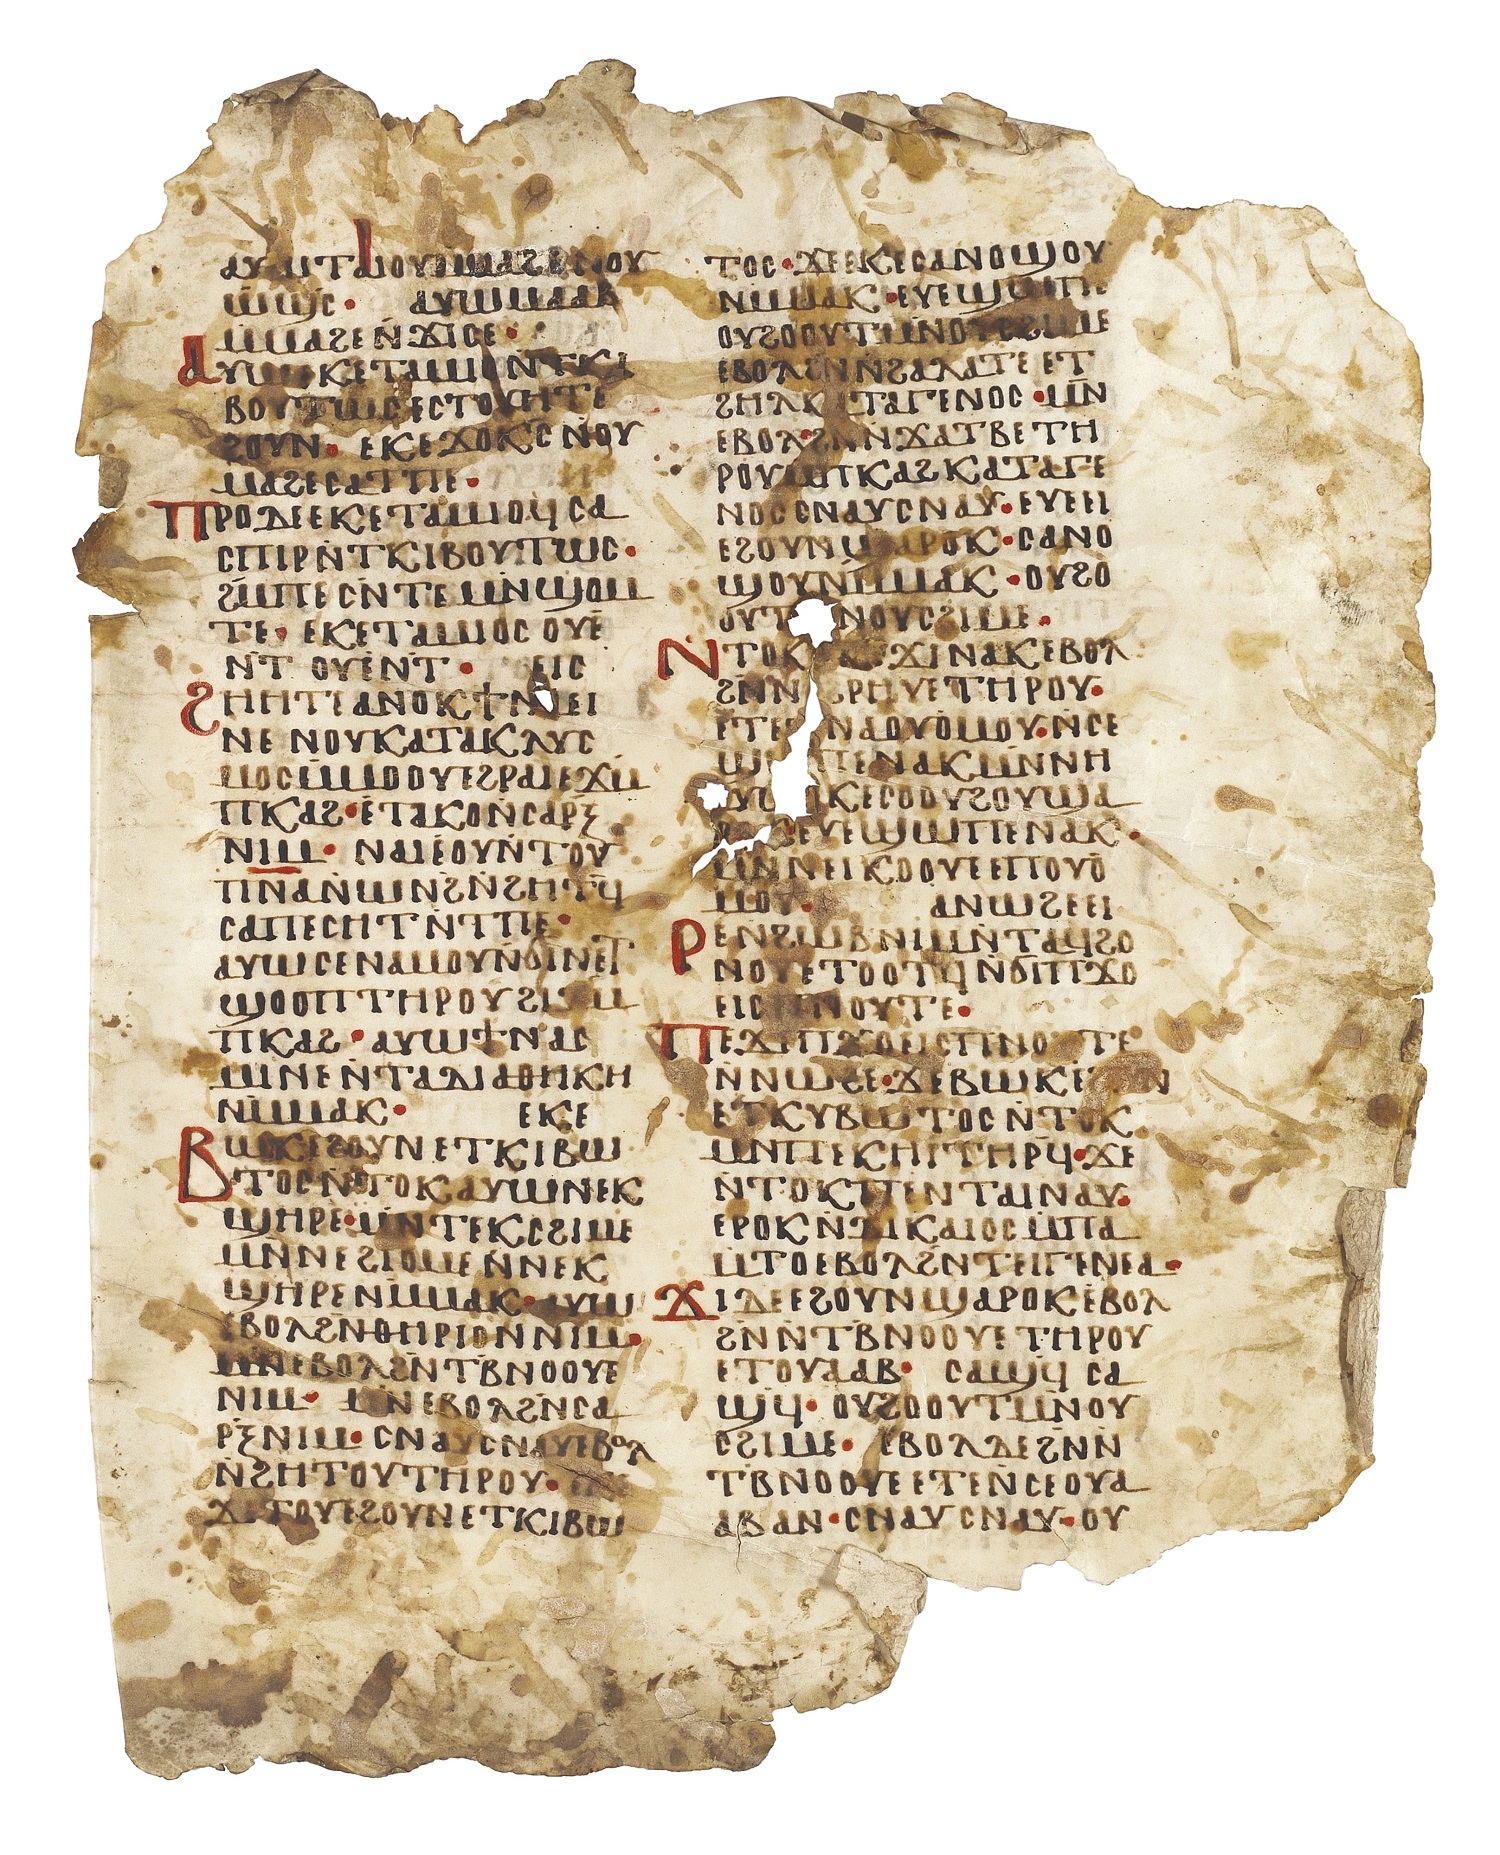 ⲱϣⲥ· ⲁⲩⲱ ⲙⲁⲁⲃ
ⲙⲙⲁϩⲉ ⲛ̇ϫⲓⲥⲉ·
ⲁⲩⲱ ⲉⲕⲉⲧⲁⲙⲓⲟ ⲛ̇ⲧⲉⲕⲓ
ⲃⲟⲩⲧⲱⲥ ⲉⲥⲧⲟⲩⲏⲧ ⲉ
ϩⲟⲩⲛ· ⲉⲕⲉϫⲟⲕⲥ ⲛ̇ⲟⲩ
ⲙⲁϩⲉ ⲥⲁⲧⲡⲉ·
ⲡⲣⲟ ⲇⲉ ⲉⲕⲉⲧⲁⲙⲓⲟϥ ⲥⲁ
ⲥⲡⲓⲣ ⲛ̇ⲧⲕⲓⲃⲟⲩⲧⲱⲥ·
ϩⲙ̇ⲡⲉⲥⲛ̇ⲧⲉ ⲙⲛϣⲟⲙ
ⲧⲉ· ⲉⲕⲉⲧⲁⲙⲓⲟⲥ ⲟⲩⲉ̇
ⲛⲧ ⲟⲩⲉ̇ⲛⲧ· ⲉⲓⲥ
ϩⲏⲏⲧⲉ ⲁⲛⲟⲕ ϯⲛⲁⲉⲓ
ⲛⲉ ⲛⲟⲩⲕⲁⲧⲁⲕⲗⲩⲥ
ⲙⲟⲥ ⲙ̇ⲙⲟⲟⲩ ⲉϩⲣⲁⲓ ⲉϫⲙ̇
ⲡⲕⲁϩ· ⲉⲧⲁⲕⲟ ⲛ̇ⲥⲁⲣⲝ
ⲛⲓⲙ· ⲛⲁⲓ ⲉⲟⲩⲛ̇ⲧⲟⲩ
ⲡ̅ⲛ̅ⲁ̅ ⲛ̇ⲱⲛϩ ⲛ̇ϩⲏⲧϥ̇
ⲥⲁⲡⲉⲥⲏⲧ ⲛ̇ⲧⲡⲉ·
ⲁⲩⲱ ⲥⲉⲛⲁⲙⲟⲩ ⲛ̇ϭⲓⲛⲉⲧ
ϣⲟⲟⲡ ⲧⲏⲣⲟⲩ ϩⲓϫⲙ̇
ⲡⲕⲁϩ· ⲁⲩⲱ ϯⲛⲁⲥ
ⲙⲓⲛⲉ ⲛ̇ⲧⲁⲇⲓⲁⲑⲏⲕⲏ
ⲛⲙ̇ⲙⲁⲕ· ⲉⲕⲉ
ⲃⲱⲕ ⲉϩⲟⲩⲛ ⲉⲧⲕⲓⲃⲱ
ⲧⲟⲥ ⲛ̇ⲧⲟⲕ ⲁⲩⲱ ⲛⲉⲕ
ϣⲏⲣⲉ· ⲙⲛ̇ⲧⲉⲕⲥϩⲓⲙⲉ
ⲙⲛ̇ⲛⲉϩⲓⲟⲙⲉ ⲛ̇ⲛⲉⲕ
ϣⲏⲣⲉ ⲛⲙ̇ⲙⲁⲕ· ⲁⲩⲱ
ⲉⲃⲟⲗ ϩⲛ̇ⲑⲏⲣⲓⲟⲛ ⲛⲓⲙ·
ⲙⲛ̇ⲉⲃⲟⲗ ϩⲛ̇ⲧⲃ̇ⲛⲟⲟⲩⲉ
ⲛⲓⲙ· ⲙⲛ̇ⲉⲃⲟⲗ ϩⲛ̇ⲥⲁ
ⲣⲝ ⲛⲓⲙ· ⲥⲛⲁⲩ ⲥⲛⲁⲩ ⲉⲃⲟⲗ
ⲛ̇ϩⲏⲧⲟⲩ ⲧⲏⲣⲟⲩ· ⲉⲕⲉ
ϫⲓⲧⲟⲩ ⲉϩⲟⲩⲛ ⲉⲧⲕⲓⲃⲱ
ⲧⲟⲥ· ϫⲉⲉⲕⲉⲥⲁⲛⲟⲩϣⲟⲩ
ⲛⲙ̇ⲙⲁⲕ· ⲉⲩⲉϣⲱⲡⲉ
ⲟⲩϩⲟⲟⲩⲧ ⲙⲛ̇ⲟⲩⲥϩⲓⲙⲉ
ⲉⲃⲟⲗ ϩⲛ̇ⲛ̇ϩⲁⲗⲁⲧⲉ ⲉⲧ
ϩⲏⲗ ⲕⲁⲧⲁⲅⲉⲛⲟⲥ· ⲙⲛ̇
ⲉⲃⲟⲗ ϩⲛ̇ⲛ̇ϫⲁⲧⲃⲉ ⲧⲏ
ⲣⲟⲩ ⲙ̇ⲡⲕⲁϩ ⲕⲁⲧⲁⲅⲉ
ⲛⲟⲥ ⲥⲛⲁⲩ ⲥⲛⲁⲩ· ⲉⲩⲉⲉⲓ
ⲉϩⲟⲩⲛ ϣⲁⲣⲟⲕ· ⲥⲁⲛⲟ
ϣⲟⲩ ⲛⲙ̇ⲙⲁⲕ· ⲟⲩϩⲟ
ⲟⲩⲧ ⲙⲛⲟⲩⲥϩⲓⲙⲉ·
ⲛ̇ⲧⲟⲕ ϫⲓ ⲛⲁⲕ ⲉⲃⲟⲗ
ϩⲛ̇ⲛ ϩⲣⲏⲩⲉ ⲧⲏⲣⲟⲩ·
ⲉⲧⲉⲧⲛⲁⲟⲩⲟ̇ⲙⲟⲩ· ⲛ̇ⲥⲉ
ϣⲱⲡⲉ ⲛⲁⲕ ⲙⲛ̇ⲛⲏ
ⲛ̇ⲕⲉⲥⲟⲟⲩϩⲟⲩ ϣⲁ
ⲣⲟⲕ ⲉⲩⲉϣⲱⲡⲉ ⲛⲁⲕ·
ⲙⲛ̇ⲛⲉⲓⲕⲟⲟⲩⲉ ⲉⲡⲟⲩⲟ̇
ⲙⲟⲩ· ⲁⲛⲱϩⲉ ⲉⲓ
ⲣⲉ ⲛ̇ϩⲱⲃ ⲛⲓⲙ ⲛ̇ⲧⲁϥϩⲟ
ⲛⲟⲩ ⲉⲧⲟⲟⲧϥ̇ ⲛ̇ϭⲓⲡϫⲟ
ⲉⲓⲥ ⲡⲛⲟⲩⲧⲉ·
ⲡⲉϫⲉⲡϫⲟⲉⲓⲥ ⲡⲛⲟⲩⲧⲉ
ⲛ̇ⲛⲱϩⲉ· ϫⲉⲃⲱⲕ ⲉϩⲟⲩⲛ
ⲉⲧⲕⲩⲃⲱⲧⲟⲥ ⲛ̇ⲧⲟⲕ
ⲙⲛ̇ⲡⲉⲕⲏⲓ ⲧⲏⲣϥ̇· ϫⲉ
ⲛ̇ⲧⲟⲕ ⲡⲉⲛⲧⲁⲓⲛⲁⲩ·
ⲉⲣⲟⲕ ⲛ̇ⲇⲓⲕⲁⲓⲟⲥ ⲙ̇ⲡⲁ
ⲙ̇ⲧⲟ ⲉⲃⲟⲗ ϩⲛ̇ⲧⲉⲓⲅⲉⲛⲉⲁ·
ϫⲓ ⲇⲉ ⲉϩⲟⲩⲛ ϣⲁⲣⲟⲕ ⲉⲃⲟⲗ
ϩⲛ̇ⲛ̇ⲧⲃ̇ⲛⲟⲟⲩⲉ ⲧⲏⲣⲟⲩ
ⲉⲧⲟⲩⲁⲁⲃ· ⲥⲁϣϥ̇ ⲥⲁ
ϣϥ̇· ⲟⲩϩⲟⲟⲩⲧ ⲙⲛ̇ⲟⲩ
ⲥϩⲓⲙⲉ· ⲉⲃⲟⲗ ⲇⲉ ϩⲛ̇ⲛ̇
ⲧⲃ̇ⲛⲟⲟⲩⲉ ⲉⲧⲉⲛ̇ⲥⲉⲟⲩⲁ
ⲁⲃ ⲁⲛ· ⲥⲛⲁⲩ ⲥⲛⲁⲩ· ⲟⲩ